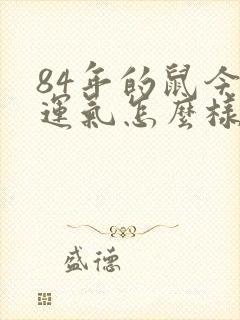 84年的鼠今
運氣怎麼樣
盛德